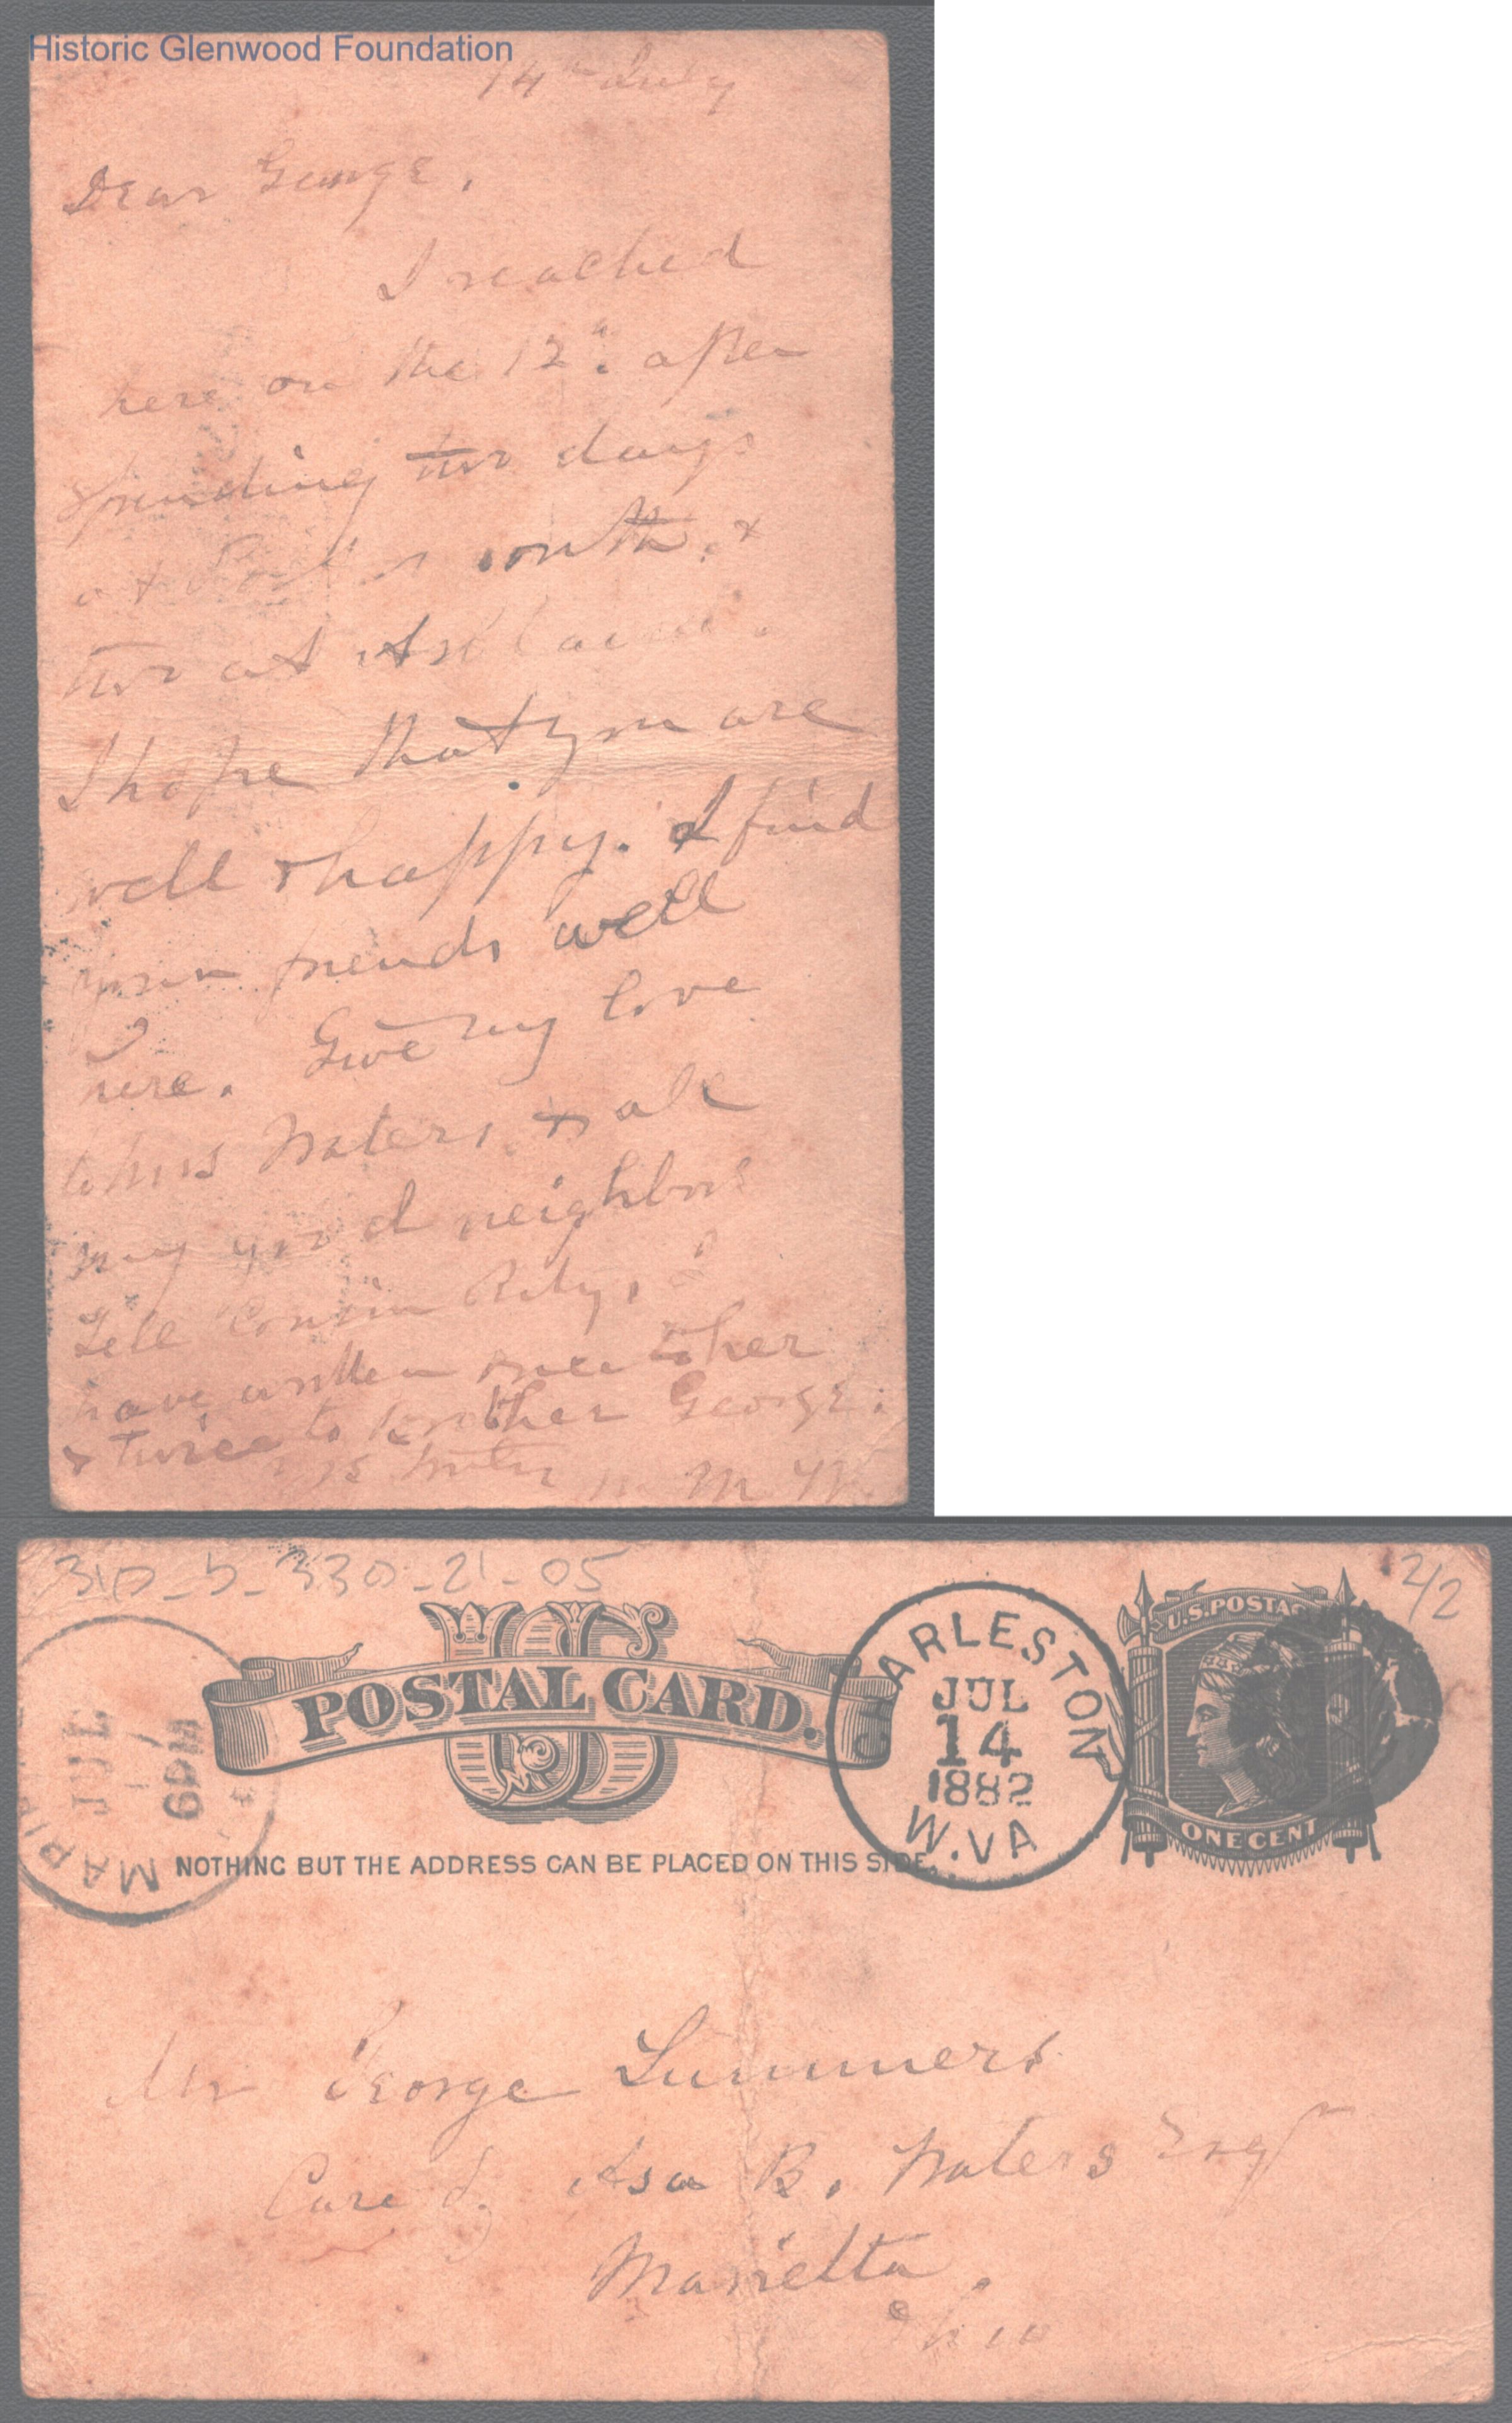 Historic Glenwood Foundation
14th July
Dear George,
I reached
here on the 12th. after
spending two days
at Portsmouth, &
two at Ashland.
I hope that you are
well & happy. I find
your friends well
here. Give my love
to Mrs Waters & all
my good neighbors
Tell Cousin Betty, I
have written once to her
& twice to brother George.
Yrs truly
M W
310-5-330-21-05
2/2
US
POSTAL CARD.
NOTHING BUT THE ADDRESS CAN BE PLACED ON THIS SIDE.
CHARLESTON
JUL
14
1882
W.VA
U.S. POSTAGE
ONE CENT
JUL
17
6PM
Mr George Summers
Care of Asa B. Waters Esq
Marietta.
Ohio